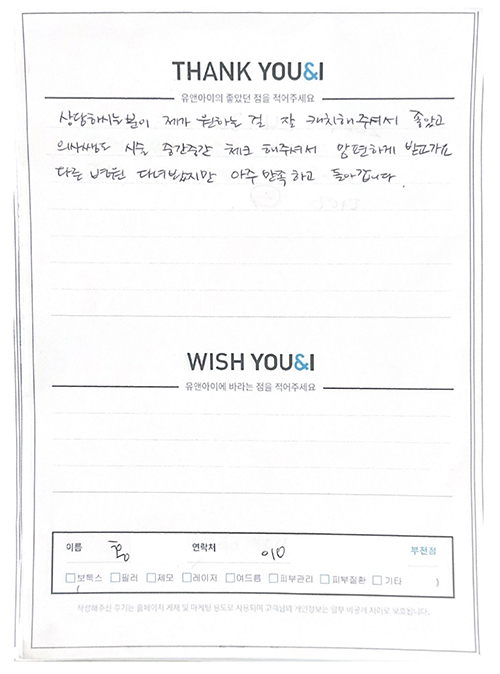 THANK YOU&I
유앤아이의 좋았던 점을 적어주세요
상담하시는분이 제가 원하는 걸 잘 캐치해주셔서 좋았고
의사쌤도 시술 중간중간 체크 해주셔서 맘편하게 받고가요
다른 병원 다녀봤지만 아주 만족하고 돌아갑니다.
WISH YOU&I
유앤아이에 바라는 점을 적어주세요
이름 홍 연락처 010 부천점
보톡스 필러 제모 레이저 여드름 피부관리 피부질환 기타 )
작성해주신 후기는 홈페이지 게재 및 마케팅 용도로 사용되며 고객님의 개인정보는 일부 비공개 처리로 보호됩니다.